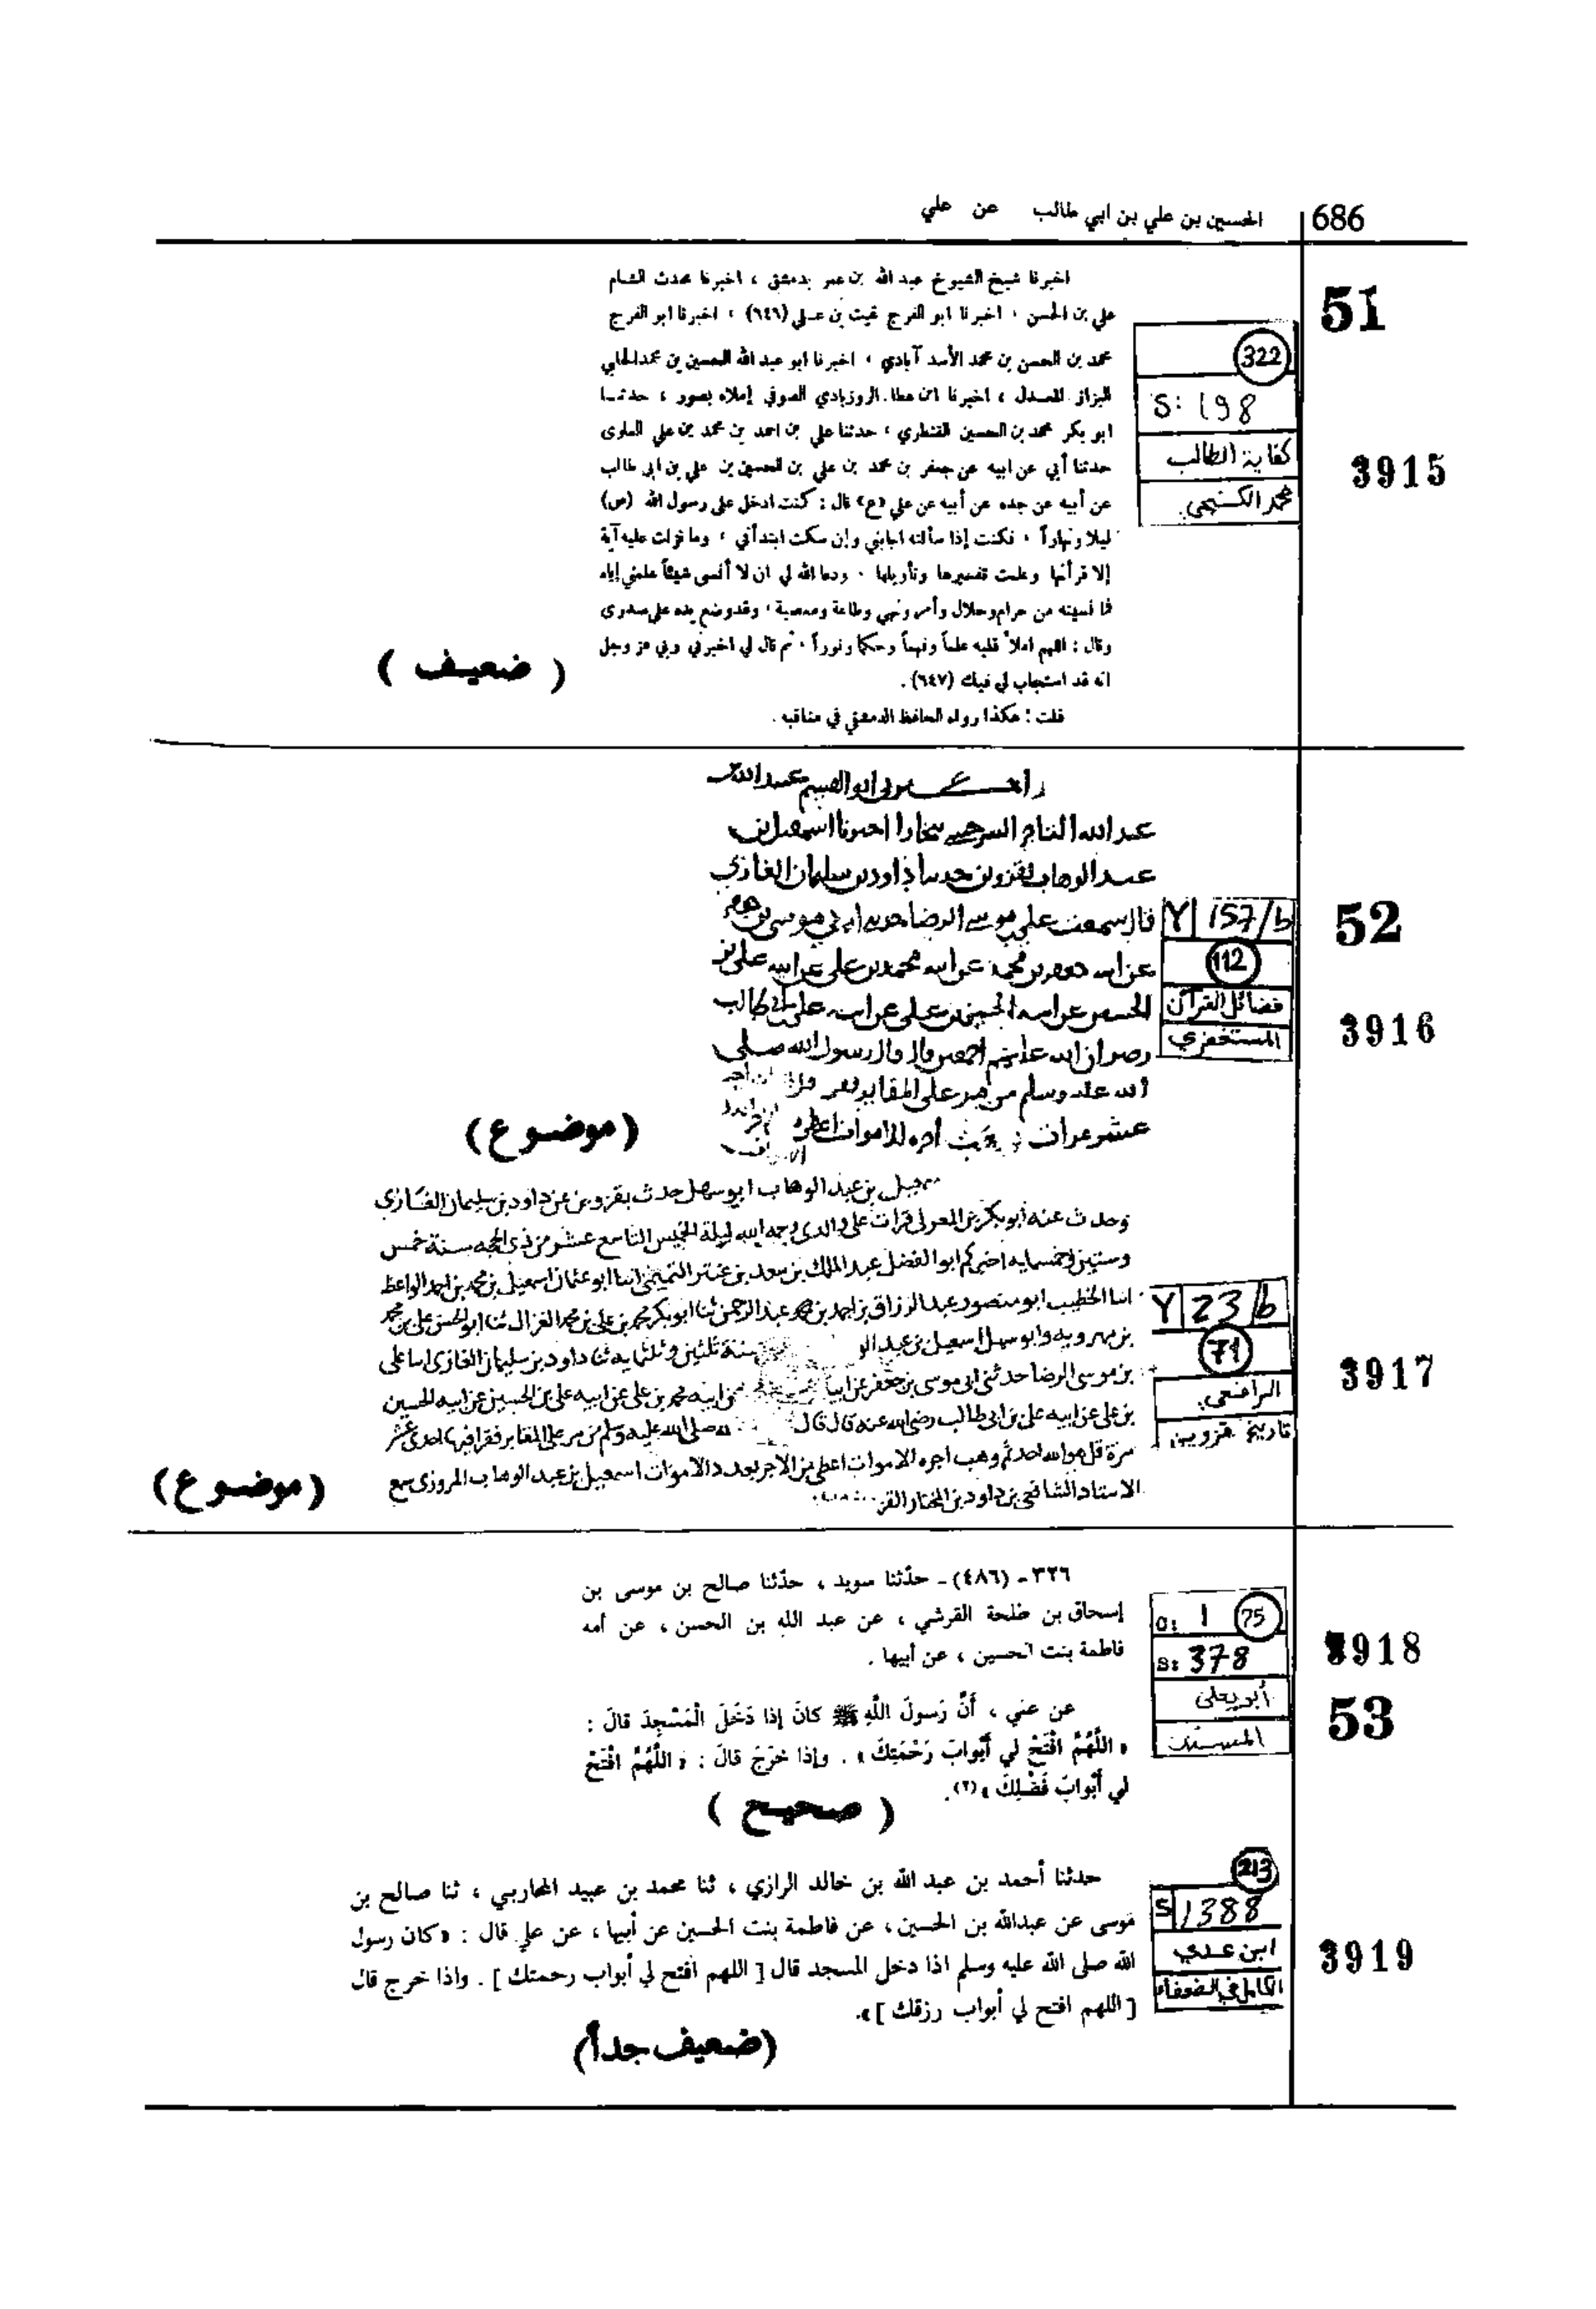 686
الحسين بن علي بن ابي طالب عن علي
51
322
S: 198
كفاية الطالب
محمد الكنجي
3915
اخبرنا شيخ الشيوخ عبد الله بن عمر بدمشق ، اخبرنا محدث الشام
علي بن الحسن ، اخبرنا ابو الفرج غيث بن علي (٦٤٦) ، اخبرنا ابو الفرج
محمد بن الحسن بن محمد الأسد آبادي ، اخبرنا ابو عبد الله الحسين بن محمد الحلبي
البزاز المعدل ، اخبرنا ابن عطاء الروزبادي الصوفي إملاء بصور ، حدثنا
ابو بكر محمد بن الحسين القنطري ، حدثنا علي بن احمد بن محمد بن علي العلوى
حدثنا أبي عن ابيه عن جعفر بن محمد بن علي بن الحسين بن علي بن ابي طالب
عن أبيه عن جده عن أبيه عن علي «ع» قال : كنت ادخل على رسول الله (ص)
ليلا ونهاراً ، فكنت إذا سألته اجابني وإن سكت ابتدأني ، وما نزلت عليه آية
إلا قرأتها وعلمت تفسيرها وتأويلها ، ودعا الله لي ان لا أنسى شيئاً علمني إياه
فما نسيته من حرام وحلال وأمر ونهي وطاعة ومعصية ، وقد وضع يده على صدرى
وقال : اللهم املأ قلبه علماً وفهماً وحكما ونوراً ، ثم قال لي اخبرني ربي عز وجل
انه قد استجاب لي فيك (٦٤٧) .
قلت : هكذا رواه الحافظ الدمشقي في مناقبه .
( ضعيف )
52
Y 157/b
112
فضائل القرآن
المستغفري
3916
عبد الله
عبد الله التاجر السرخسي ببخارا اخبرنا اسمعيل بن
عبد الوهاب بقزوين حدثنا داود بن سليمان الغازي
قال سمعت علي بن موسى الرضا حدثني ابي موسى بن جعفر
عن ابيه جعفر بن محمد عن ابيه محمد بن علي عن ابيه علي بن
الحسين عن ابيه الحسين بن علي عن ابيه علي بن ابي طالب
رضوان الله عليهم اجمعين قال قال رسول الله صلى
الله عليه وسلم من مر على المقابر
عشر مرات اجره للاموات اعطي
(موضوع)
Y 23/b
71
الرافعي
تاريخ قزوين
3917
بن عبد الوهاب ابو سهل حدث بقزوين عن داود بن سليمان الغازي
وحدث عنه ابو بكر قرات على والدى رحمه الله ليلة الخميس التاسع عشر من ذي الحجه سنة خمس
وستين وخمسمايه اخبركم ابو الفضل عبد الملك بن سعد بن عنتر التميمي انبا ابو عثمان اسمعيل بن محمد بن احمد الواعظ
انبا الخطيب ابو منصور عبد الرزاق بن احمد بن عبد الرحمن ثنا ابو بكر محمد بن علي بن محمد الغزال ثنا ابو الحسن علي بن محمد
بن مهرويه وابو سهل اسمعيل بن عبد الو سنة ثلثين وثلثمايه ثنا داود بن سليمان الغازى انبا علي
بن موسى الرضا حدثني ابي موسى بن جعفر عن ابيه عن ابيه محمد بن علي عن ابيه علي بن الحسين عن ابيه الحسين
بن علي عن ابيه علي بن ابي طالب رضي الله عنه قال قال صلى الله عليه وسلم من مر على المقابر فقرا فيها احدى عشر
مرة قل هو الله احد ثم وهب اجره الاموات اعطي من الاجر بعدد الاموات اسمعيل بن عبد الوهاب المروزى سمع
الاستاذ الشافعي بن داود بن المختار
(موضوع)
O: 1 75
S: 378
أبو يعلى
المسند
3918
53
٣٢٦ - (٤٨٦) - حدّثنا سويد ، حدّثنا صالح بن موسى بن
إسحاق بن طلحة القرشي ، عن عبد الله بن الحسن ، عن أمه
فاطمة بنت الحسين ، عن أبيها .
عن علي ، أَنَّ رَسولَ اللَّهِ ﷺ كانَ إذا دَخَلَ الْمَسْجِدَ قالَ :
« اللَّهُمَّ افْتَحْ لي أَبْوابَ رَحْمَتِكَ » . وإذا خَرَجَ قالَ : « اللَّهُمَّ افْتَحْ
لي أَبْوابَ فَضْلِكَ » (٢) .
( صحيح )
213
S 1388
ابن عدي
الكامل في الضعفاء
3919
حدثنا أحمد بن عبد الله بن خالد الرازي ، ثنا محمد بن عبيد المحاربي ، ثنا صالح بن
موسى عن عبدالله بن الحسين ، عن فاطمة بنت الحسين عن أبيها ، عن علي قال : «كان رسول
الله صلى الله عليه وسلم اذا دخل المسجد قال [ اللهم افتح لي أبواب رحمتك ] . واذا خرج قال
[ اللهم افتح لي أبواب رزقك ] ».
(ضعيف جداً)